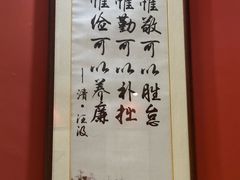 惟敬可以胜怠
惟勤可以补拙
惟俭可以养廉
—清·汪汲